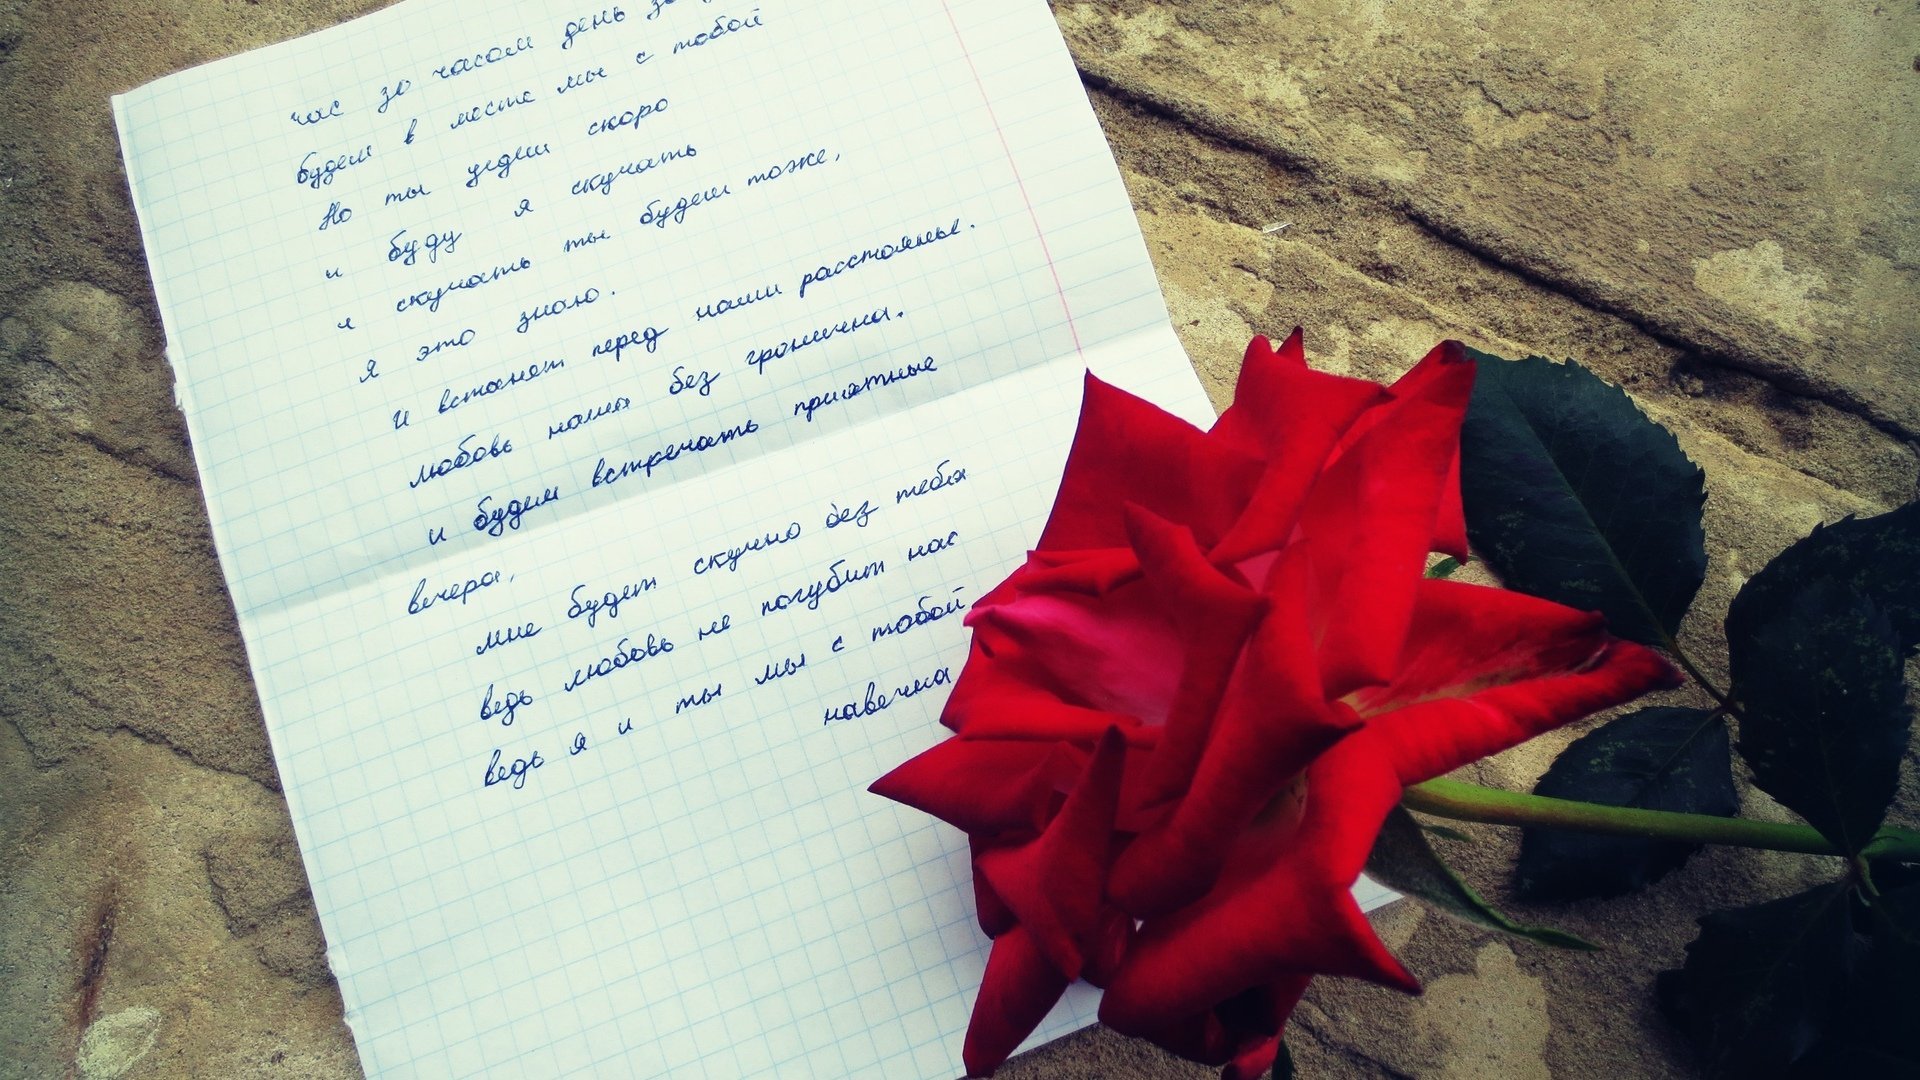 час за часом день за
будем в месте мы с тобой
Но ты уедеш скоро
и буду я скучать
и скучать ты будеш тоже,
я это знаю.
И встанет перед нами расстоянье.
любовь наша без граничена.
и будем встречать приятные
вечера,
мне будет скучно без тебя
ведь любовь не погубит нас
ведь я и ты мы с тобой
навечна